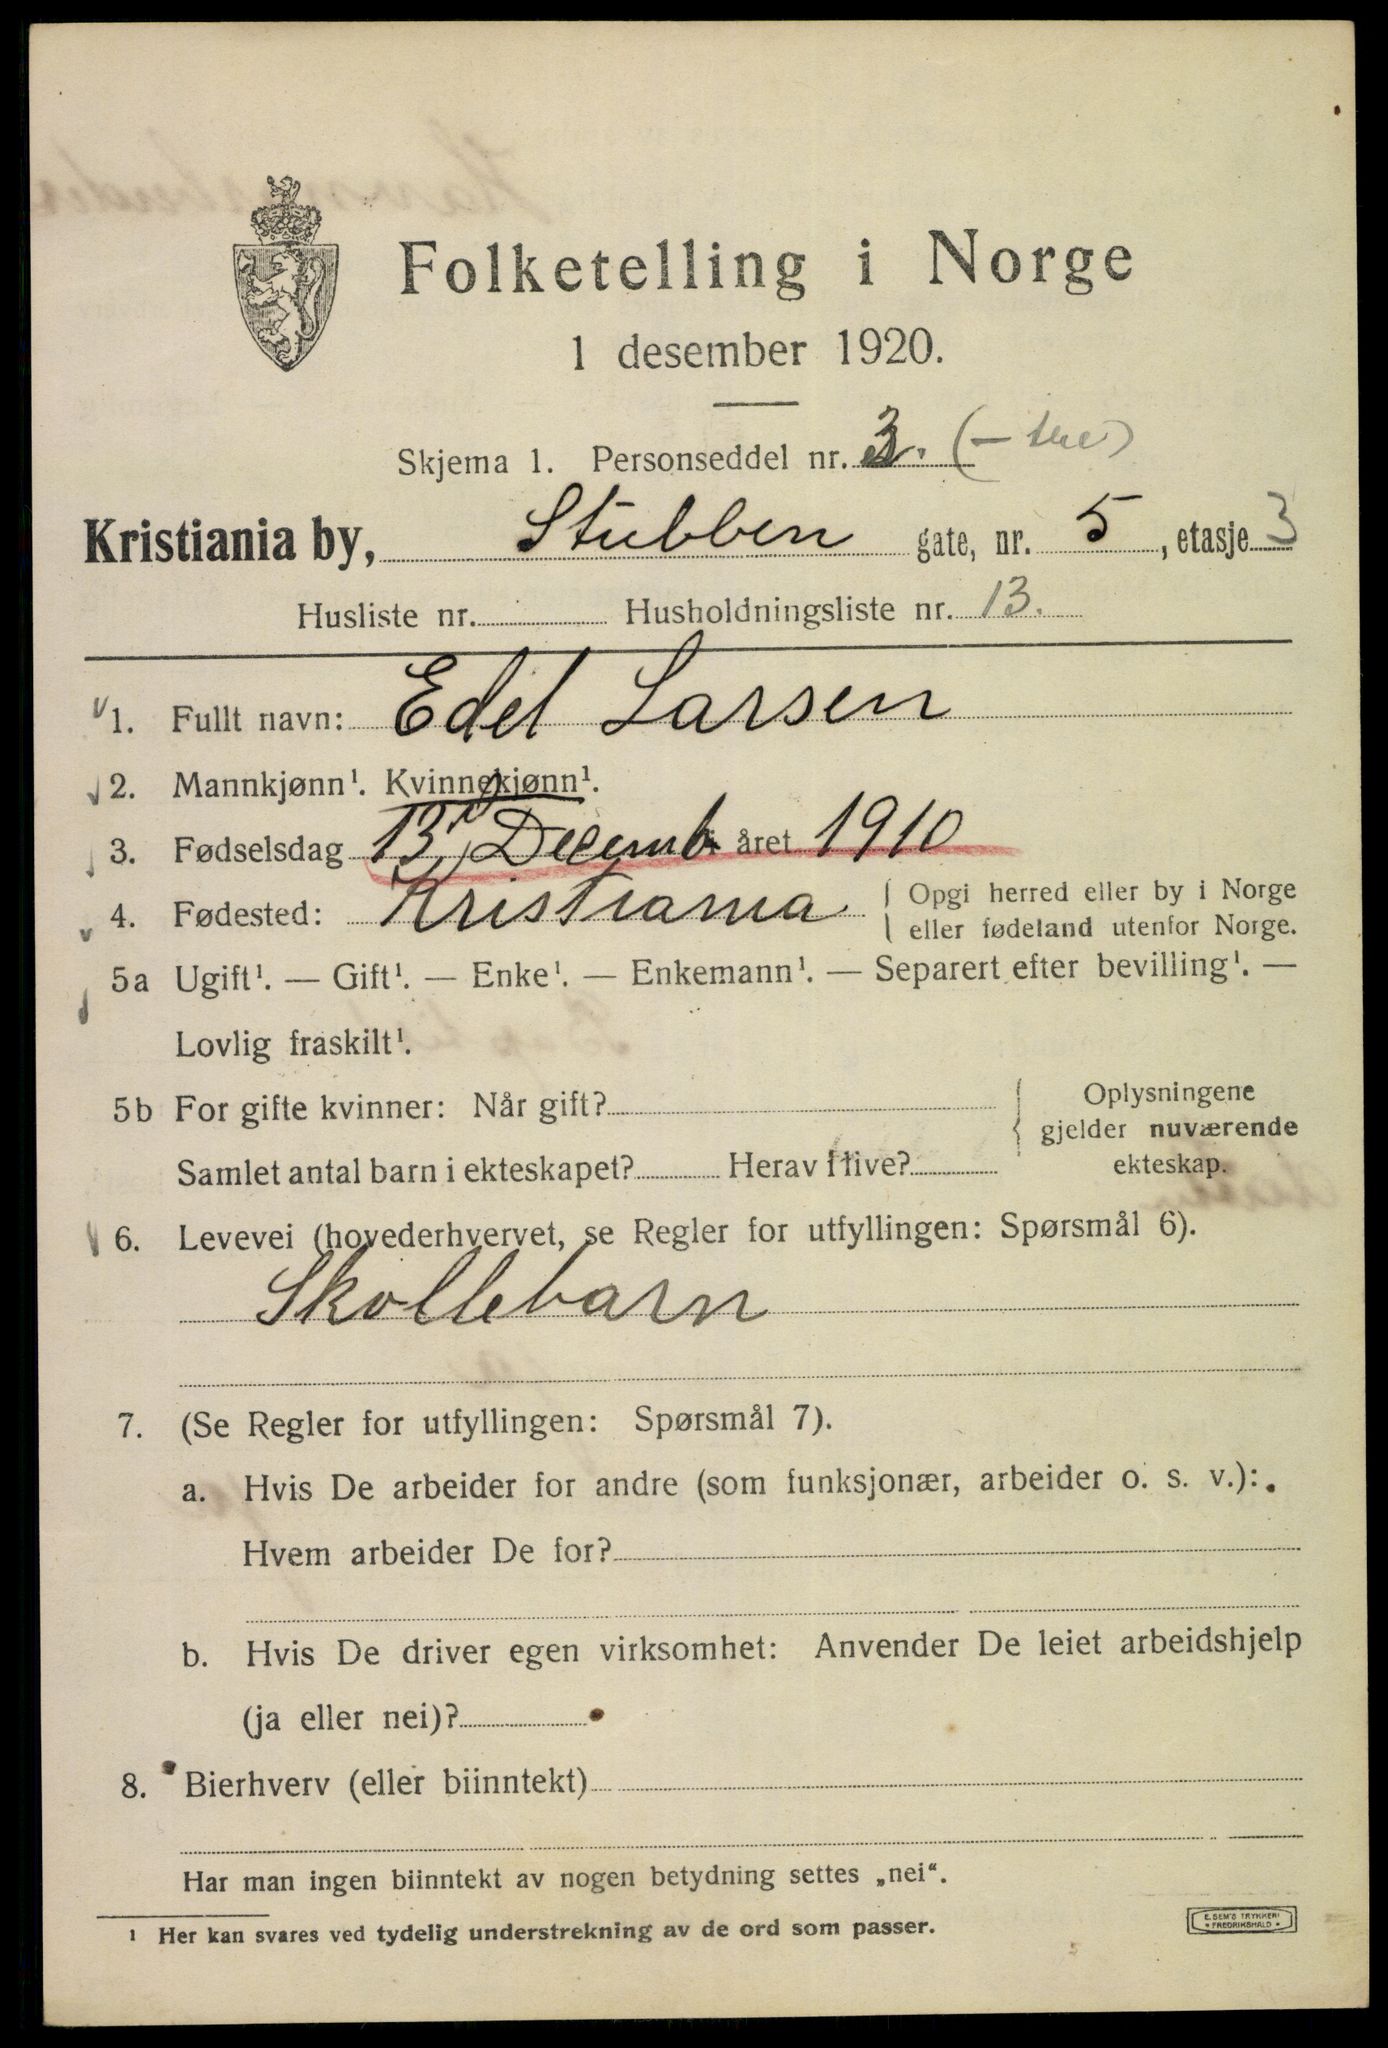 Folketelling i Norge
1 desember 1920.
Skjema 1. Personseddel nr. 3.
Kristiania by, Stubben gate, nr. 5, etasje 3
Husliste nr. Husholdningsliste nr. 13.
1. Fullt navn: Edel Larsen
2. Mannkjønn¹. Kvinnekjønn¹.
3. Fødselsdag 13 Decemb i året 1910
4. Fødested: Kristiania { Opgi herred eller by i Norge
eller fødeland utenfor Norge.
5a Ugift¹. — Gift¹. — Enke¹. — Enkemann¹. — Separert efter bevilling¹. —
Lovlig fraskilt¹.
5b For gifte kvinner: Når gift? { Oplysningene
gjelder nuværende
Samlet antal barn i ekteskapet? Herav i live? ekteskap.
6. Levevei (hovederhvervet, se Regler for utfyllingen: Spørsmål 6).
Skollebarn
7. (Se Regler for utfyllingen: Spørsmål 7).
a. Hvis De arbeider for andre (som funksjonær, arbeider o. s. v.):
Hvem arbeider De for?
b. Hvis De driver egen virksomhet: Anvender De leiet arbeidshjelp
(ja eller nei)?
8. Bierhverv (eller biinntekt)
Har man ingen biinntekt av nogen betydning settes „nei“.
¹ Her kan svares ved tydelig understrekning av de ord som passer.
E. SEM'S TRYKKERI
FREDRIKSHALD